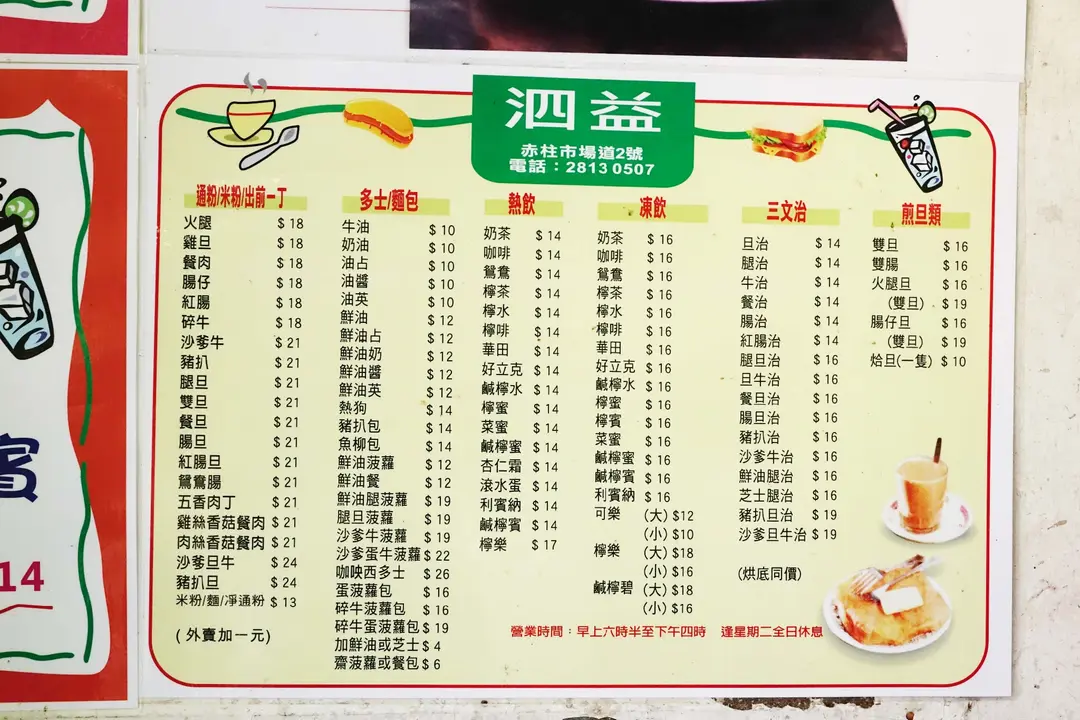 泗益
赤柱市場道2號
電話：2813 0507
通粉/米粉/出前一丁
火腿 $ 18
雞旦 $ 18
餐肉 $ 18
腸仔 $ 18
紅腸 $ 18
碎牛 $ 18
沙爹牛 $ 21
豬扒 $ 21
腿旦 $ 21
雙旦 $ 21
餐旦 $ 21
腸旦 $ 21
紅腸旦 $ 21
鴛鴦腸 $ 21
五香肉丁 $ 21
雞絲香菇餐肉 $ 21
肉絲香菇餐肉 $ 21
沙爹旦牛 $ 24
豬扒旦 $ 24
米粉/麵/凈通粉 $ 13
(外賣加一元)
多士/麵包
牛油 $ 10
奶油 $ 10
油占 $ 10
油醬 $ 10
油英 $ 10
鮮油 $ 12
鮮油占 $ 12
鮮油奶 $ 12
鮮油醬 $ 12
鮮油英 $ 12
熱狗 $ 14
豬扒包 $ 14
魚柳包 $ 14
鮮油菠蘿 $ 12
鮮油餐 $ 12
鮮油腿菠蘿 $ 19
腿旦菠蘿 $ 19
沙爹牛菠蘿 $ 19
沙爹蛋牛菠蘿 $ 22
咖央西多士 $ 26
蛋菠蘿包 $ 16
碎牛菠蘿包 $ 16
碎牛蛋菠蘿包 $ 19
加鮮油或芝士 $ 4
齋菠蘿或餐包 $ 6
熱飲
奶茶 $ 14
咖啡 $ 14
鴛鴦 $ 14
檸茶 $ 14
檸水 $ 14
檸啡 $ 14
華田 $ 14
好立克 $ 14
鹹檸水 $ 14
檸蜜 $ 14
菜蜜 $ 14
鹹檸蜜 $ 14
杏仁霜 $ 14
滾水蛋 $ 14
利賓納 $ 14
鹹檸賓 $ 14
檸樂 $ 17
凍飲
奶茶 $ 16
咖啡 $ 16
鴛鴦 $ 16
檸茶 $ 16
檸水 $ 16
檸啡 $ 16
華田 $ 16
好立克 $ 16
鹹檸水 $ 16
檸蜜 $ 16
檸賓 $ 16
菜蜜 $ 16
鹹檸蜜 $ 16
鹹檸賓 $ 16
利賓納 $ 16
可樂 (大) $12
(小) $10
檸樂 (大) $18
(小) $16
鹹檸碧 (大) $18
(小) $16
三文治
旦治 $ 14
腿治 $ 14
牛治 $ 14
餐治 $ 14
腸治 $ 14
紅腸治 $ 14
腿旦治 $ 16
旦牛治 $ 16
餐旦治 $ 16
腸旦治 $ 16
豬扒治 $ 16
沙爹牛治 $ 16
鮮油腿治 $ 16
芝士腿治 $ 16
豬扒旦治 $ 19
沙爹旦牛治 $ 19
(烘底同價)
煎旦類
雙旦 $ 16
雙腸 $ 16
火腿旦 $ 16
(雙旦) $ 19
腸仔旦 $ 16
(雙旦) $ 19
烚旦(一隻) $ 10
營業時間：早上六時半至下午四時 逢星期二全日休息
賓
14